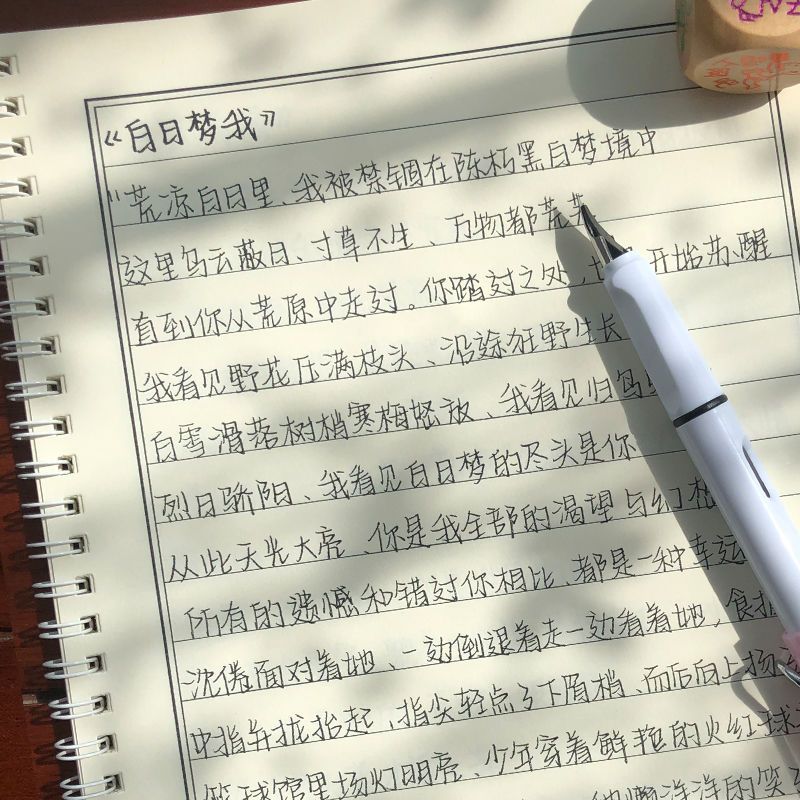 《白日梦我》
"荒凉白日里、我被禁锢在陈朽黑白梦境中
这里乌云蔽日、寸草不生、万物都荒芜
直到你从荒原中走过。你踏过之处, 开始苏醒
我看见野花压满枝头、沿途狂野生长
白雪滑落树梢寒梅怒放、我看见归鸟
烈日骄阳、我看见白日梦的尽头是你
从此天光大亮、你是我全部的渴望与幻想
所有的遗憾和错过你相比、都是一种幸运
沈倦面对着她、一边倒退着走一边看着她,食指
中指并拢抬起、指尖轻点了下眉梢、而后向上扬
篮球馆里场灯明亮、少年穿着鲜艳的火红球
懒洋洋的笑